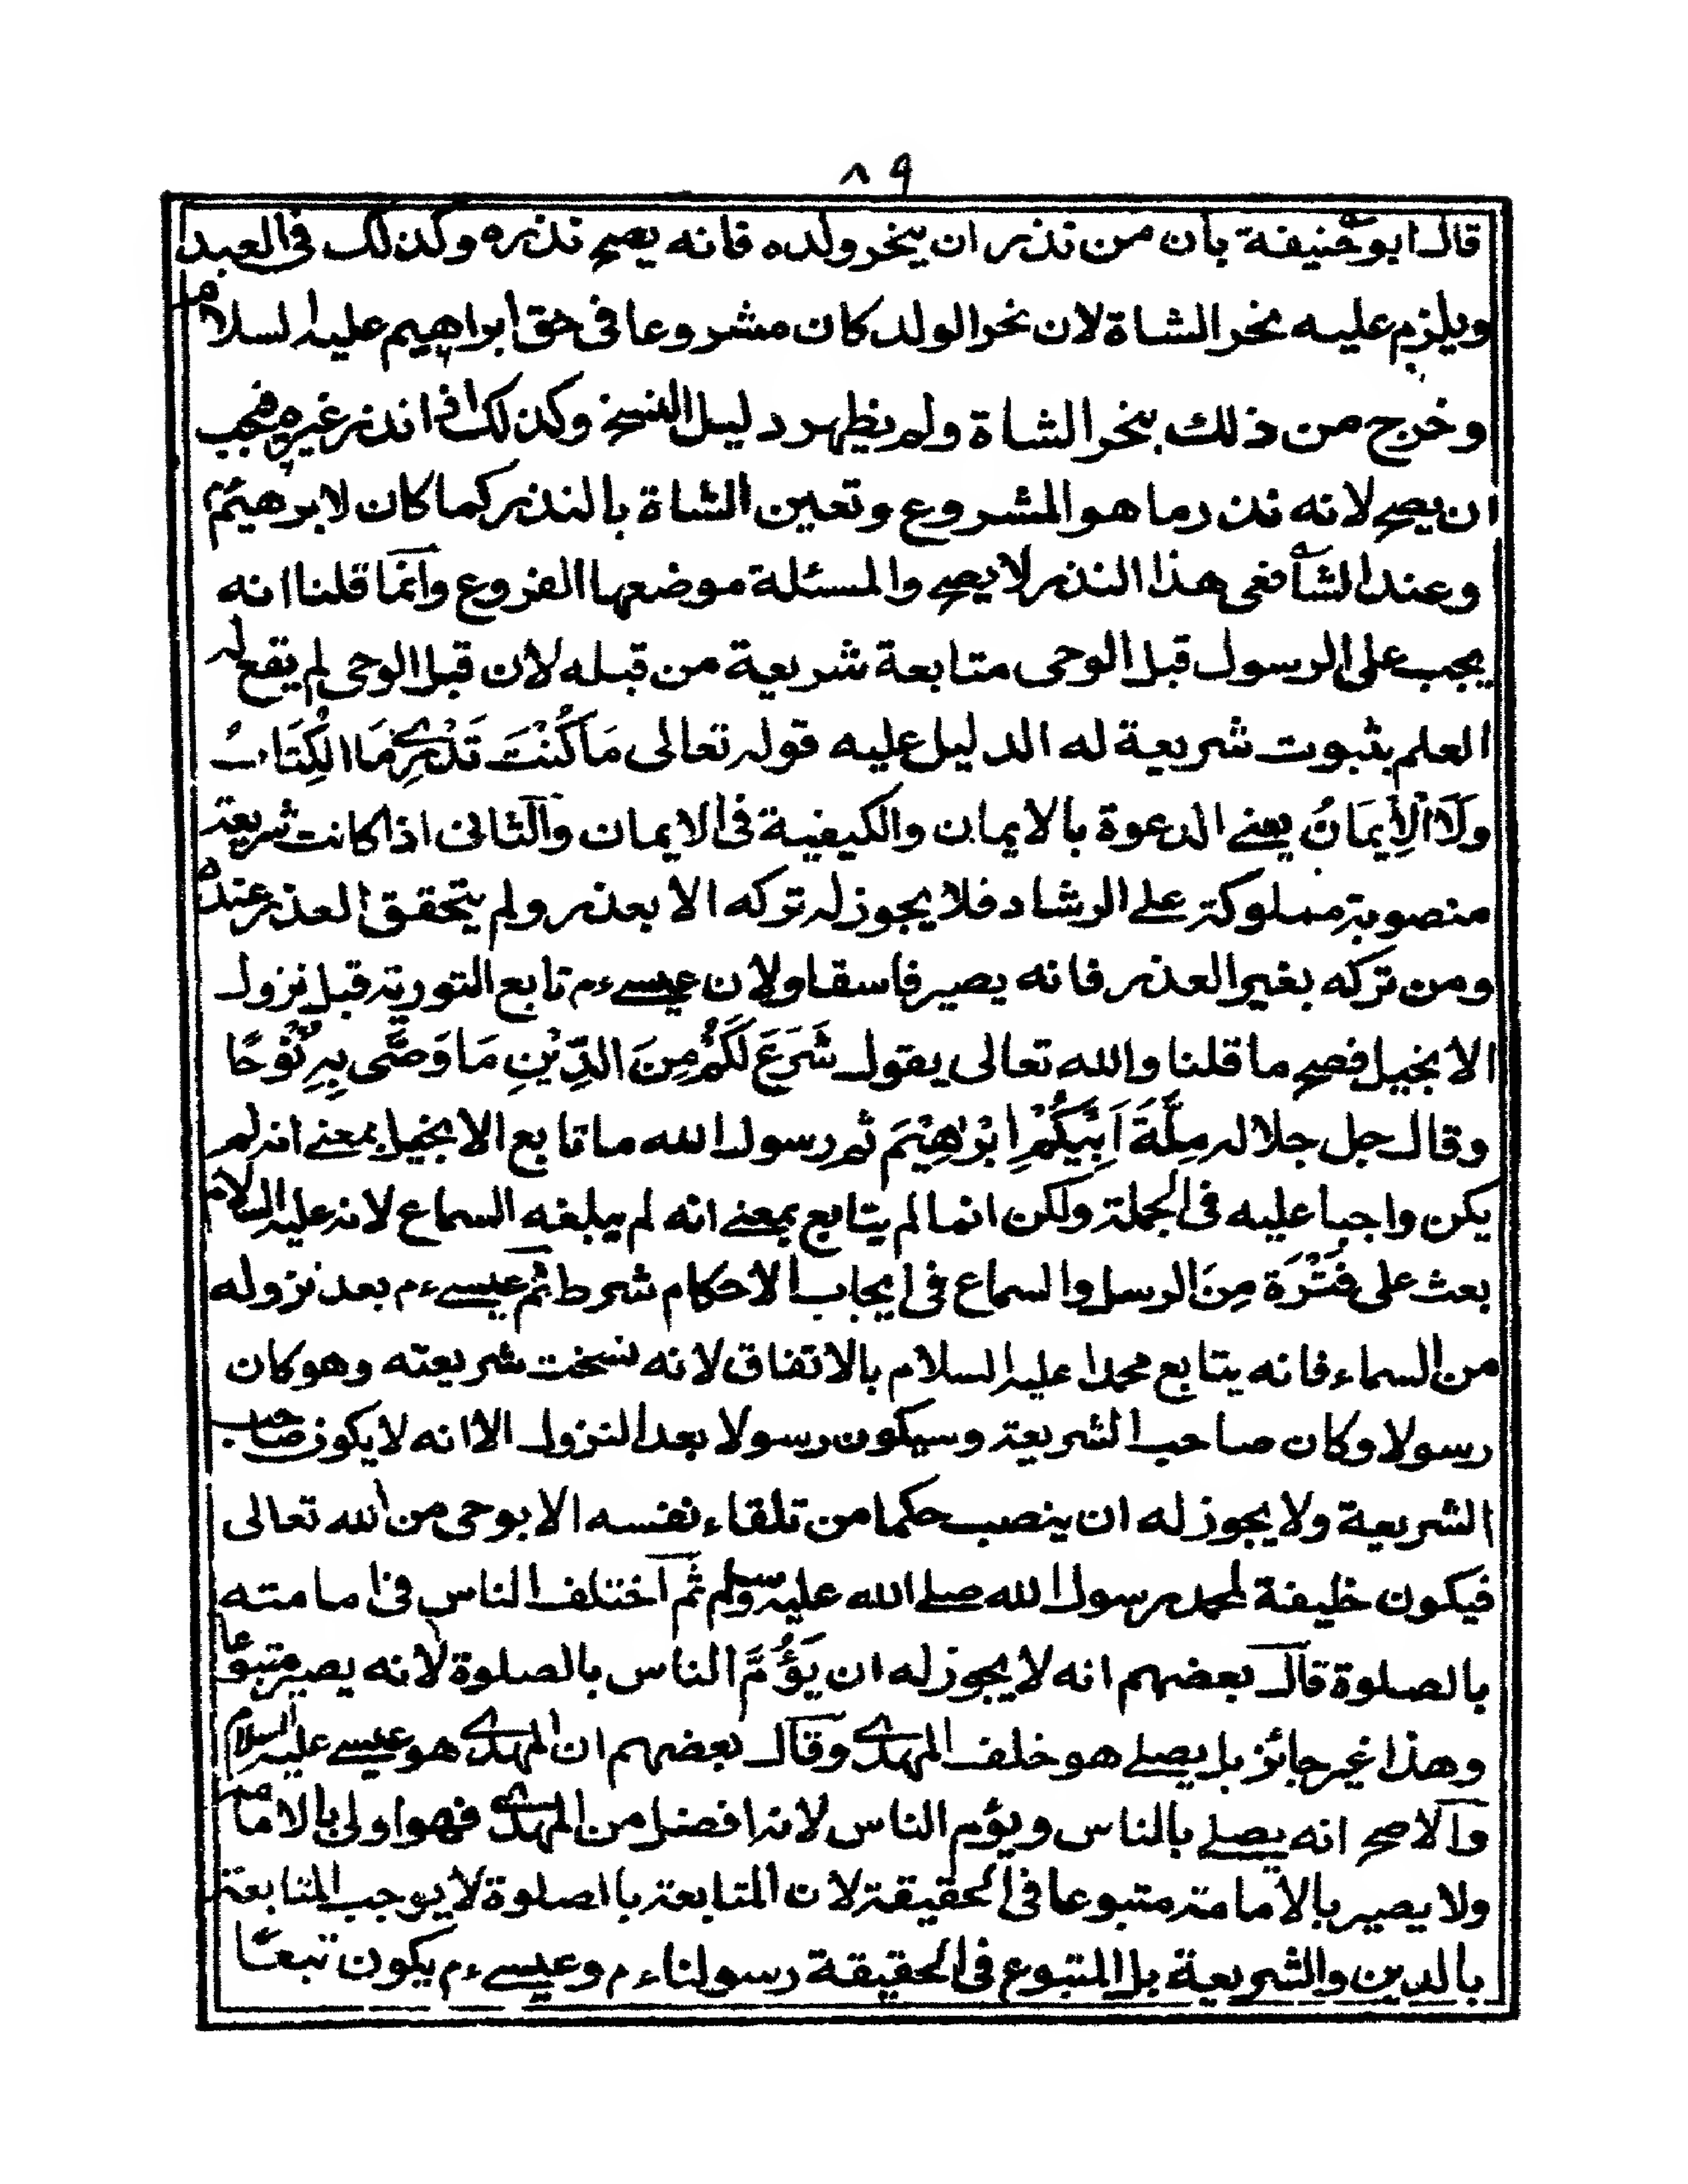 ٨٩
قال ابو حنيفة بان من نذر ان ينحر ولده فانه يصح نذره وكذلك فى العبد
ويلزم عليه نحر الشاة لان نحر الولد كان مشروعا فى حق ابراهيم عليه السلام
وخرج من ذلك بنحر الشاة ولم يظهر دليل النسخ وكذلك اذا نذر غيره فيجب
ان يصح لانه نذر ما هو المشروع وتعين الشاة بالنذر كما كان لابرهيم
وعند الشافعى هذا النذر لا يصح والمسئلة موضعها الفروع وانما قلنا انه
يجب على الرسول قبل الوحى متابعة شريعة من قبله لان قبل الوحى لم يقع له
العلم بثبوت شريعة له الدليل عليه قوله تعالى مَا كُنْتَ تَدْرِىْ مَا الْكِتَابُ
وَلَا الْاِيمَانُ يعنے الدعوة بالايمان والكيفية فى الايمان والثانى اذا كانت شريعته
منصوبة مسلوكة علے الرشاد فلا يجوز له تركه الا بعذر ولم يتحقق العذر عنده
ومن تركه بغير العذر فانه يصير فاسقا ولان عيسے ءم تابع التورية قبل نزول
الانجيل فصح ما قلنا والله تعالى يقول شَرَعَ لَكُمْ مِنَ الدِّيْنِ مَا وَصَّى بِهِ نُوْحًا
وقال جل جلاله مِلَّةَ اَبِيْكُمْ اِبْرٰهِيْمَ ثم رسول الله ما تابع الانجيل بمعنے انه لم
يكن واجبا عليه فى الجملة ولكن انما لم يتابع بمعنے انه لم يبلغه السماع لانه عليه السلام
بعث على فَتْرَة مِنَ الرسل والسماع فى ايجاب الاحكام شرط ثم عيسے ءم بعد نزوله
من السماء فانه يتابع محمدا عليه السلام بالاتفاق لانه نسخت شريعته وهو كان
رسولا وكان صاحب الشريعة وسيكون رسولا بعد النزول الا انه لا يكون صاحب
الشريعة ولا يجوز له ان ينصب حكما من تلقاء نفسه الا بوحى من الله تعالى
فيكون خليفة لمحمد رسول الله صلے الله عليه وسلم ثم اختلف الناس فى امامته
بالصلوة قال بعضهم انه لا يجوز له ان يَؤُمَّ الناس بالصلوة لانه يصير متبوعا
وهذا غير جائز بل يصلے هو خلف المهدے وقال بعضهم ان المهدے هو عيسے عليه السلام
والاصح انه يصلے بالناس ويؤم الناس لانه افضل من المهدے فهو اولى بالامامة
ولا يصير بالامامة متبوعا فى الحقيقة لان المتابعة بالصلوة لا يوجب المتابعة
بالدين والشريعة بل المتبوع فى الحقيقة رسولنا ءم وعيسے ءم يكون تبعًا